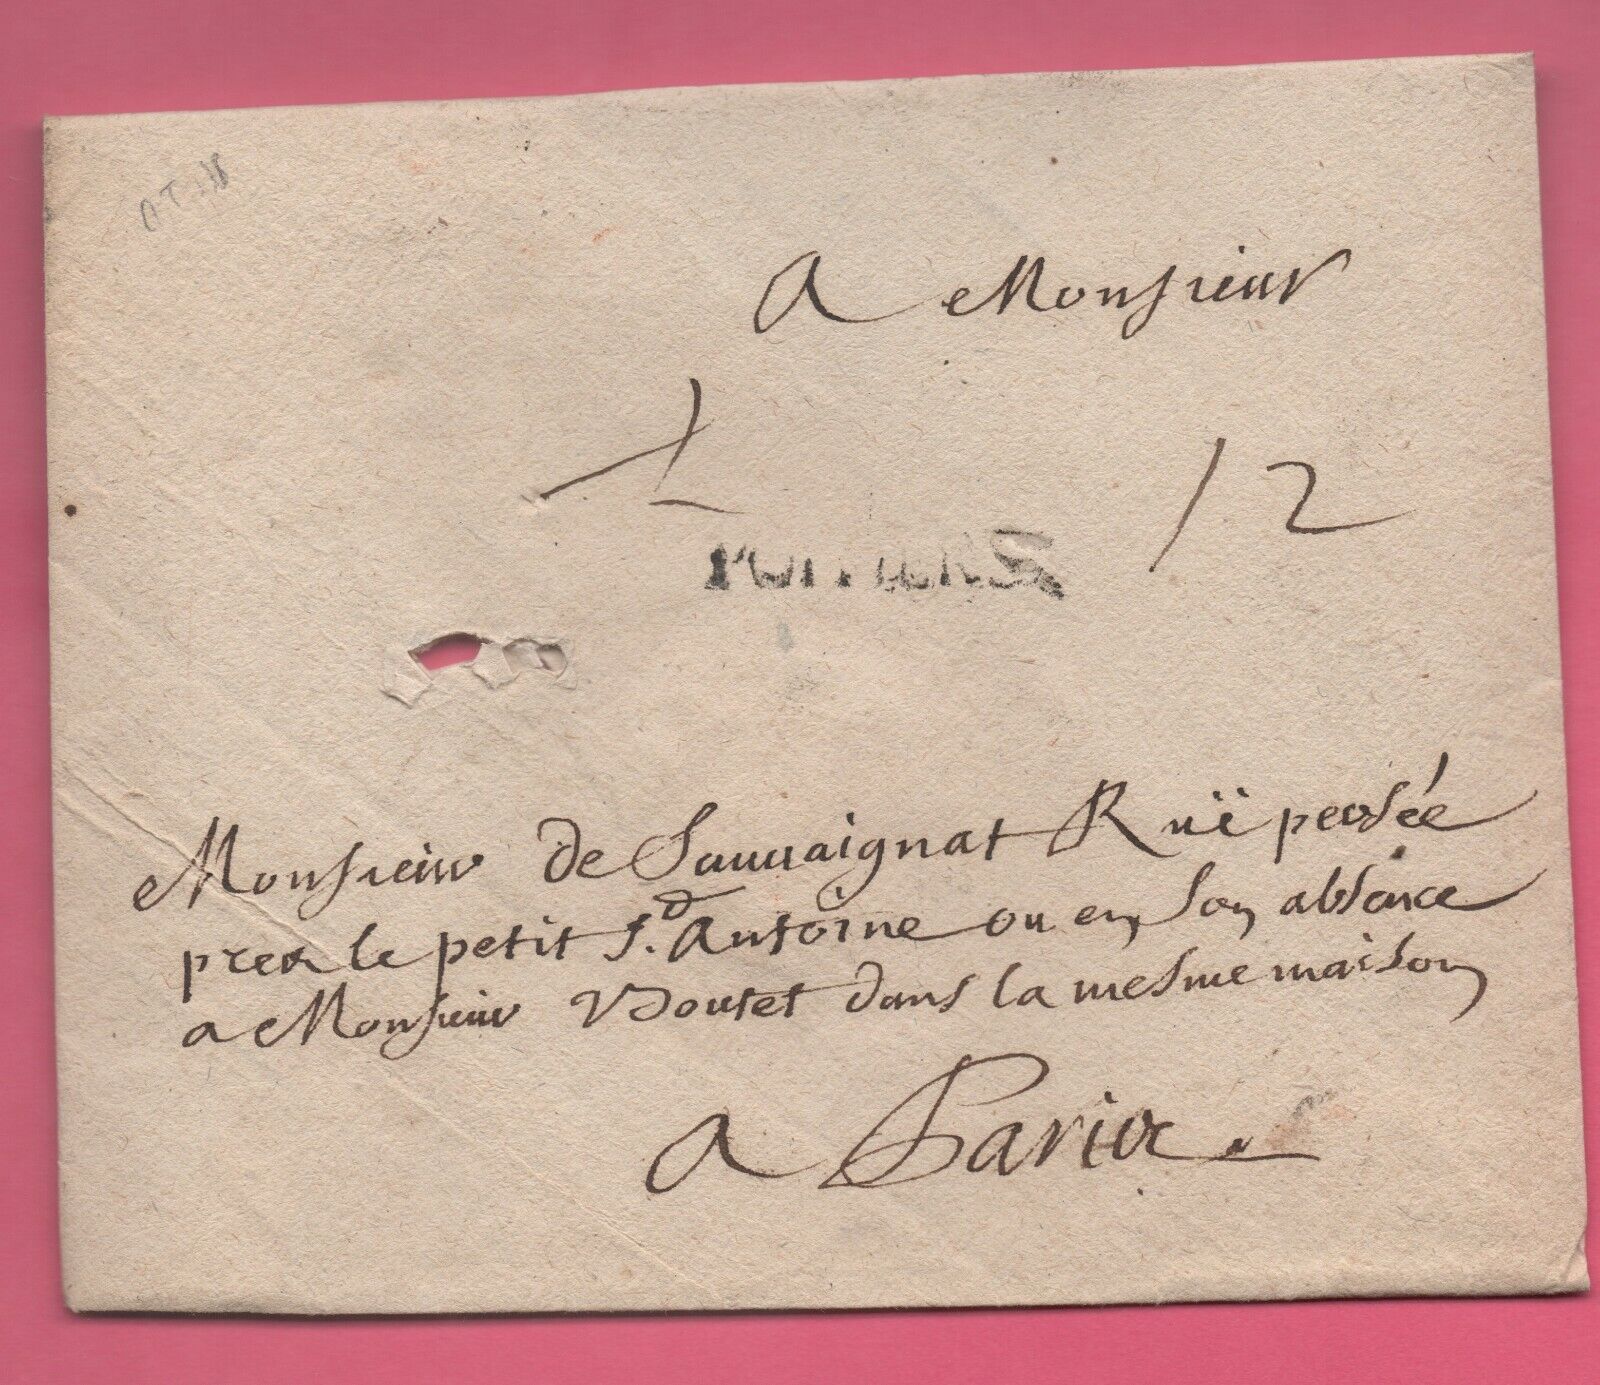 A Monsieur
12
POITIERS
Monsieur de Sauuaignat Ruë persée
pres le petit St. Antoine ou en son absence
a Monsieur Boutet dans la mesme maison
a Paris.